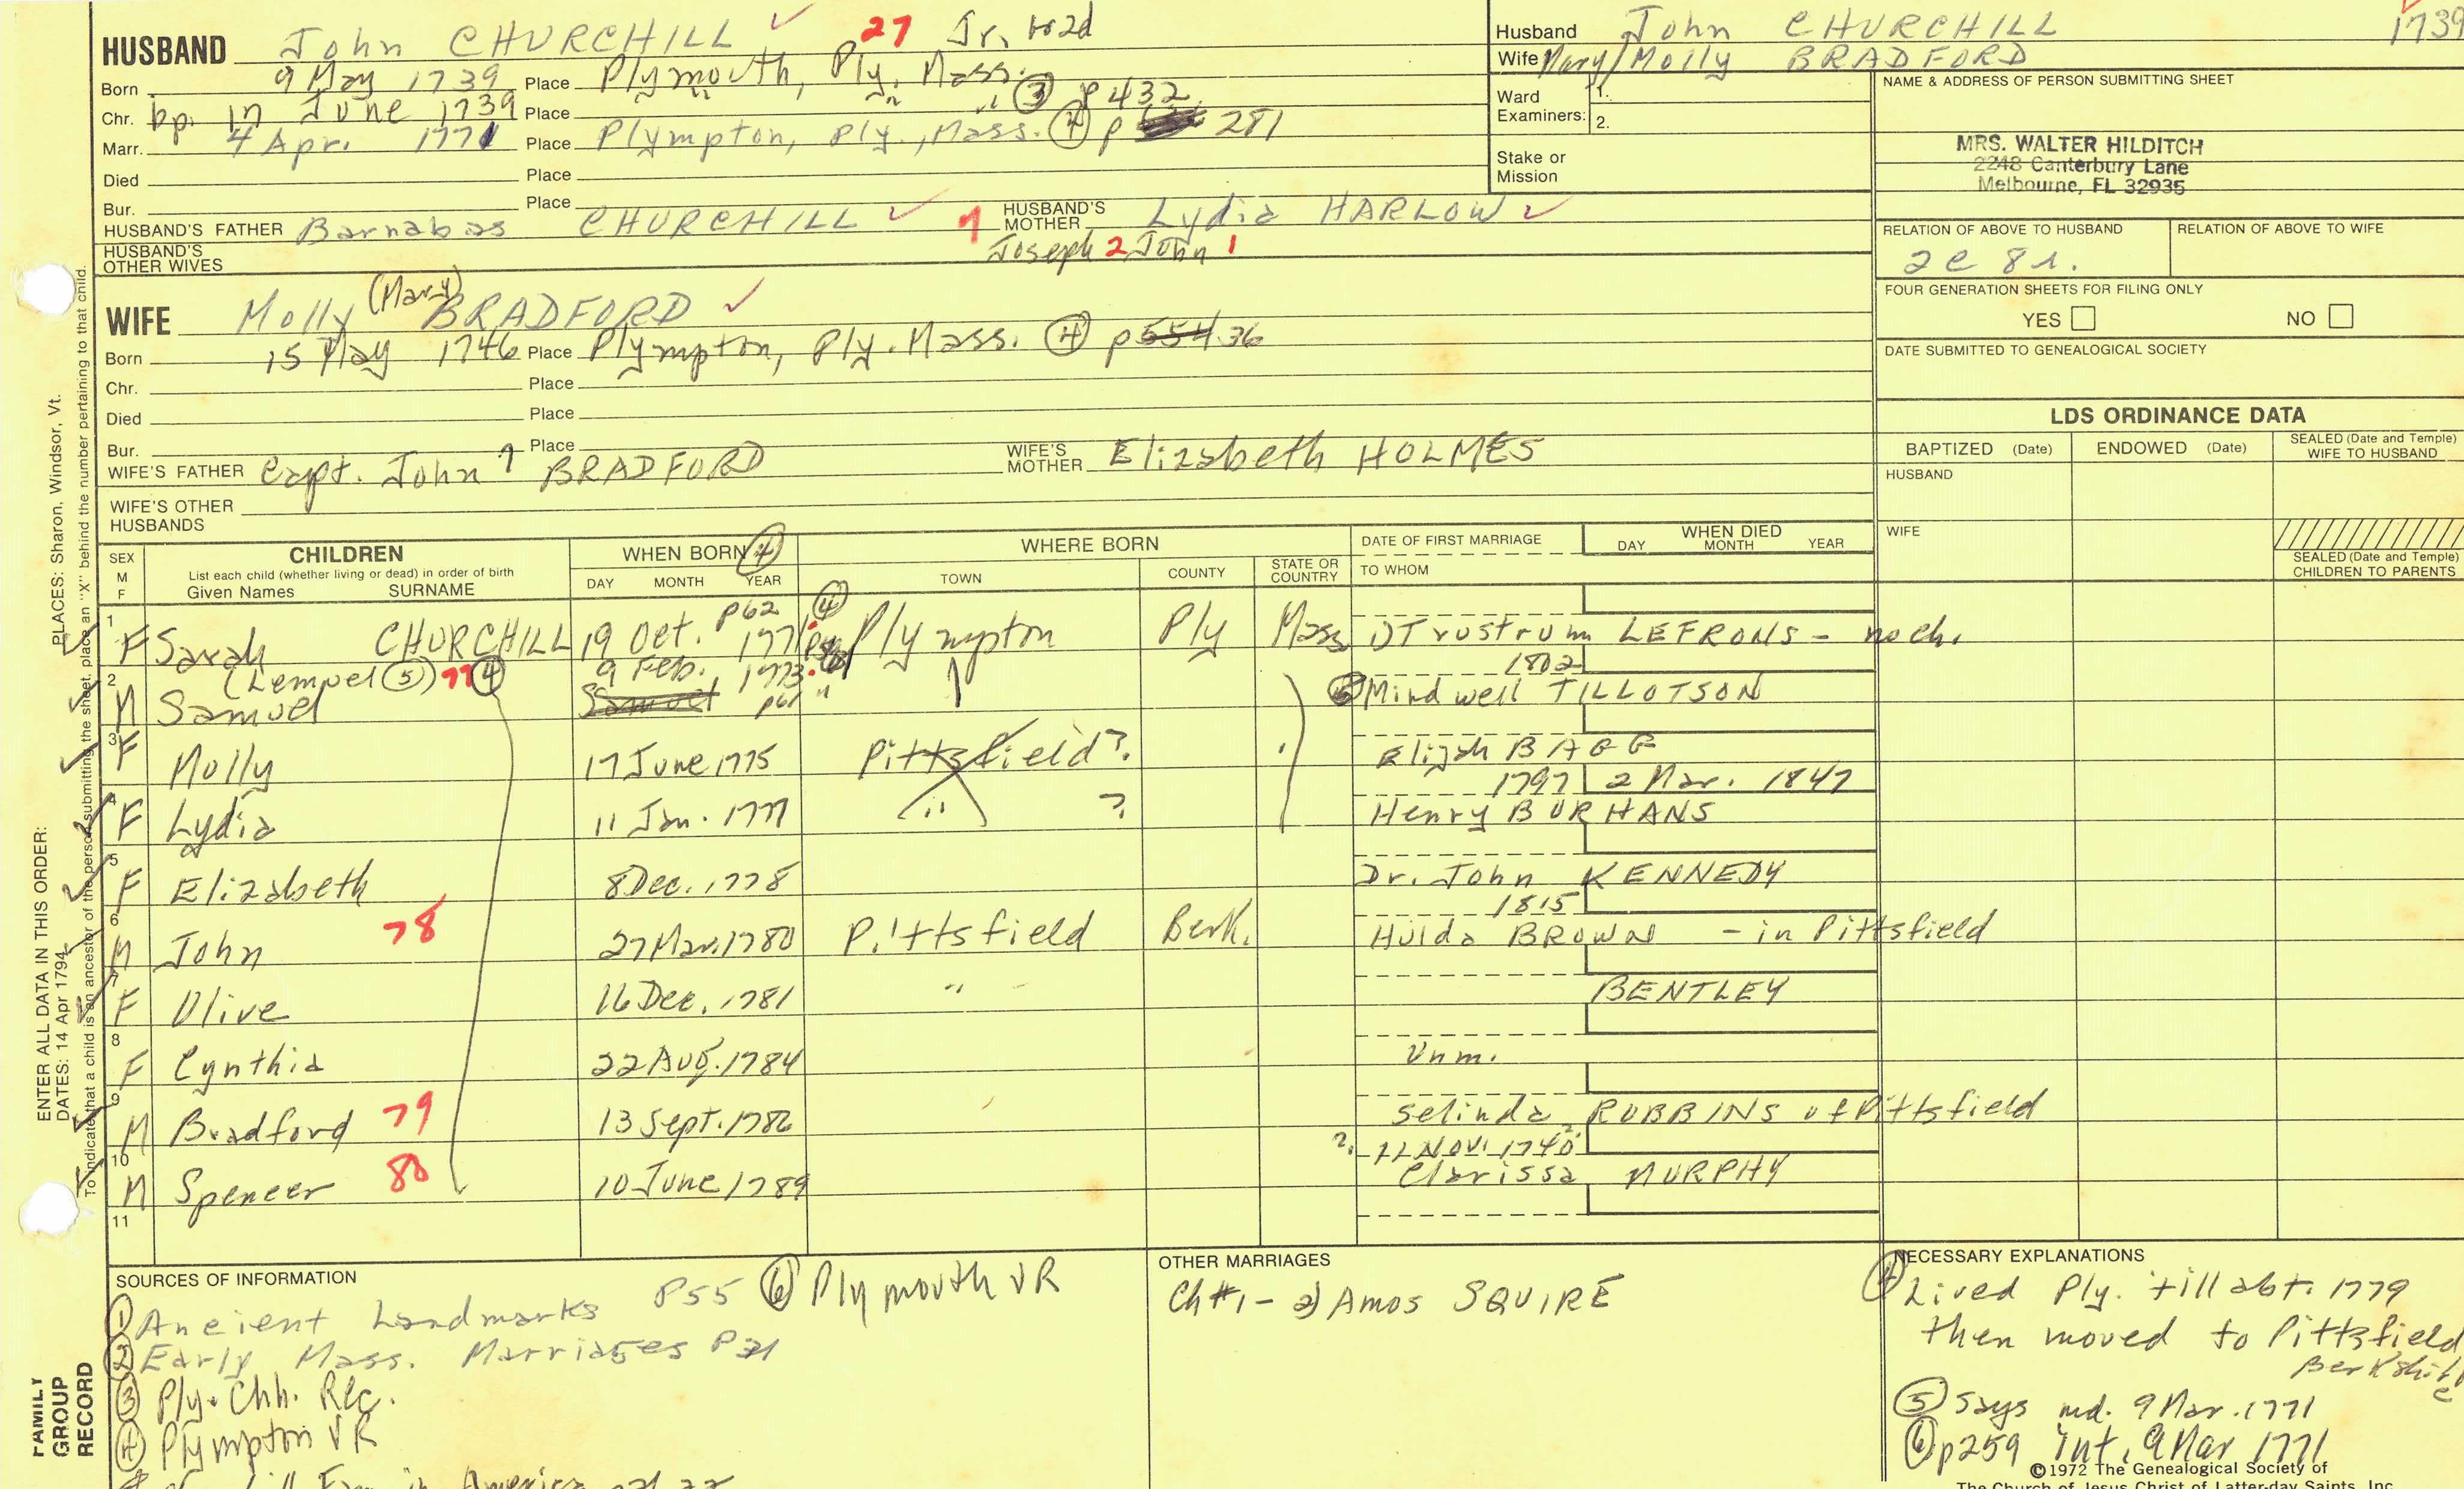 HUSBAND John CHURCHILL ✓ 27 Jr. or 2d
Born 9 May 1739 Place Plymouth, Ply. Mass.
Chr. bp. 17 June 1739 Place " " " ③ p 432
Marr. 4 Apr. 1771 Place Plympton, Ply., Mass. ④ p 281
Died Place
Bur. Place
HUSBAND'S FATHER Barnabas CHURCHILL ✓ 7 HUSBAND'S MOTHER Lydia HARLOW ✓
HUSBAND'S OTHER WIVES Joseph 2 John 1
WIFE Molly (Mary) BRADFORD ✓
Born 15 May 1746 Place Plympton, Ply. Mass. ④ p 554 36
Chr. Place
Died Place
Bur. Place
WIFE'S FATHER Capt. John ? BRADFORD WIFE'S MOTHER Elizabeth HOLMES
WIFE'S OTHER HUSBANDS
Husband John CHURCHILL 1739
Wife Mary/Molly BRADFORD
Ward Examiners: 1.
2.
Stake or Mission
NAME & ADDRESS OF PERSON SUBMITTING SHEET
MRS. WALTER HILDITCH
2248 Canterbury Lane
Melbourne, FL 32935
RELATION OF ABOVE TO HUSBAND RELATION OF ABOVE TO WIFE
2c 8r.
FOUR GENERATION SHEETS FOR FILING ONLY
YES NO
DATE SUBMITTED TO GENEALOGICAL SOCIETY
LDS ORDINANCE DATA
BAPTIZED (Date) ENDOWED (Date) SEALED (Date and Temple) WIFE TO HUSBAND
HUSBAND
WIFE
SEALED (Date and Temple) CHILDREN TO PARENTS
SEX M F CHILDREN WHEN BORN ④ WHERE BORN DATE OF FIRST MARRIAGE WHEN DIED
List each child (whether living or dead) in order of birth
Given Names SURNAME DAY MONTH YEAR TOWN COUNTY STATE OR COUNTRY TO WHOM DAY MONTH YEAR
1 F Sarah CHURCHILL 19 Oct. 1771 p62 ④ Plympton Ply Mass 1) Trustrum LEFRONS - no ch.
2 M Samuel (Lemuel ⑤) 77 ④ 9 Feb. 1773 p61 " 1802 Mindwell TILLOTSON
3 F Molly 17 June 1775 Pittsfield? Elijah BAGG
4 F Lydia 11 Jan. 1777 " ? 1797 2 Mar. 1847 Henry BURHANS
5 F Elizabeth 8 Dec. 1778 Dr. John KENNEDY
6 M John 78 27 Mar. 1780 Pittsfield Berk. 1815 Hulda BROWN - in Pittsfield
7 F Olive 16 Dec. 1781 " BENTLEY
8 F Cynthia 22 Aug. 1784 Unm.
9 M Bradford 79 13 Sept. 1786 Selinda ROBBINS of Pittsfield
10 M Spencer 80 10 June 1789 ? 22 Nov. 1740? Clarissa MURPHY
11
SOURCES OF INFORMATION
① Ancient Landmarks P55 ⑥ Plymouth VR
② Early Mass. Marriages P 21
③ Ply. Chh. Rec.
④ Plympton VR
in America
OTHER MARRIAGES
Ch #1 - 2) Amos SQUIRE
NECESSARY EXPLANATIONS
④ Lived Ply. till abt. 1779
then moved to Pittsfield
Berkshire
⑤ says md. 9 Mar. 1771
⑥ p259 int. 9 Mar 1771
©1972 The Genealogical Society of
The Church of Jesus Christ of Latter-day Saints, Inc.
PLACES: Sharon, Windsor, Vt.
ENTER ALL DATA IN THIS ORDER:
DATES: 14 Apr 1794
To indicate that a child is an ancestor of the person submitting the sheet, place an "X" behind the number pertaining to that child.
FAMILY GROUP RECORD